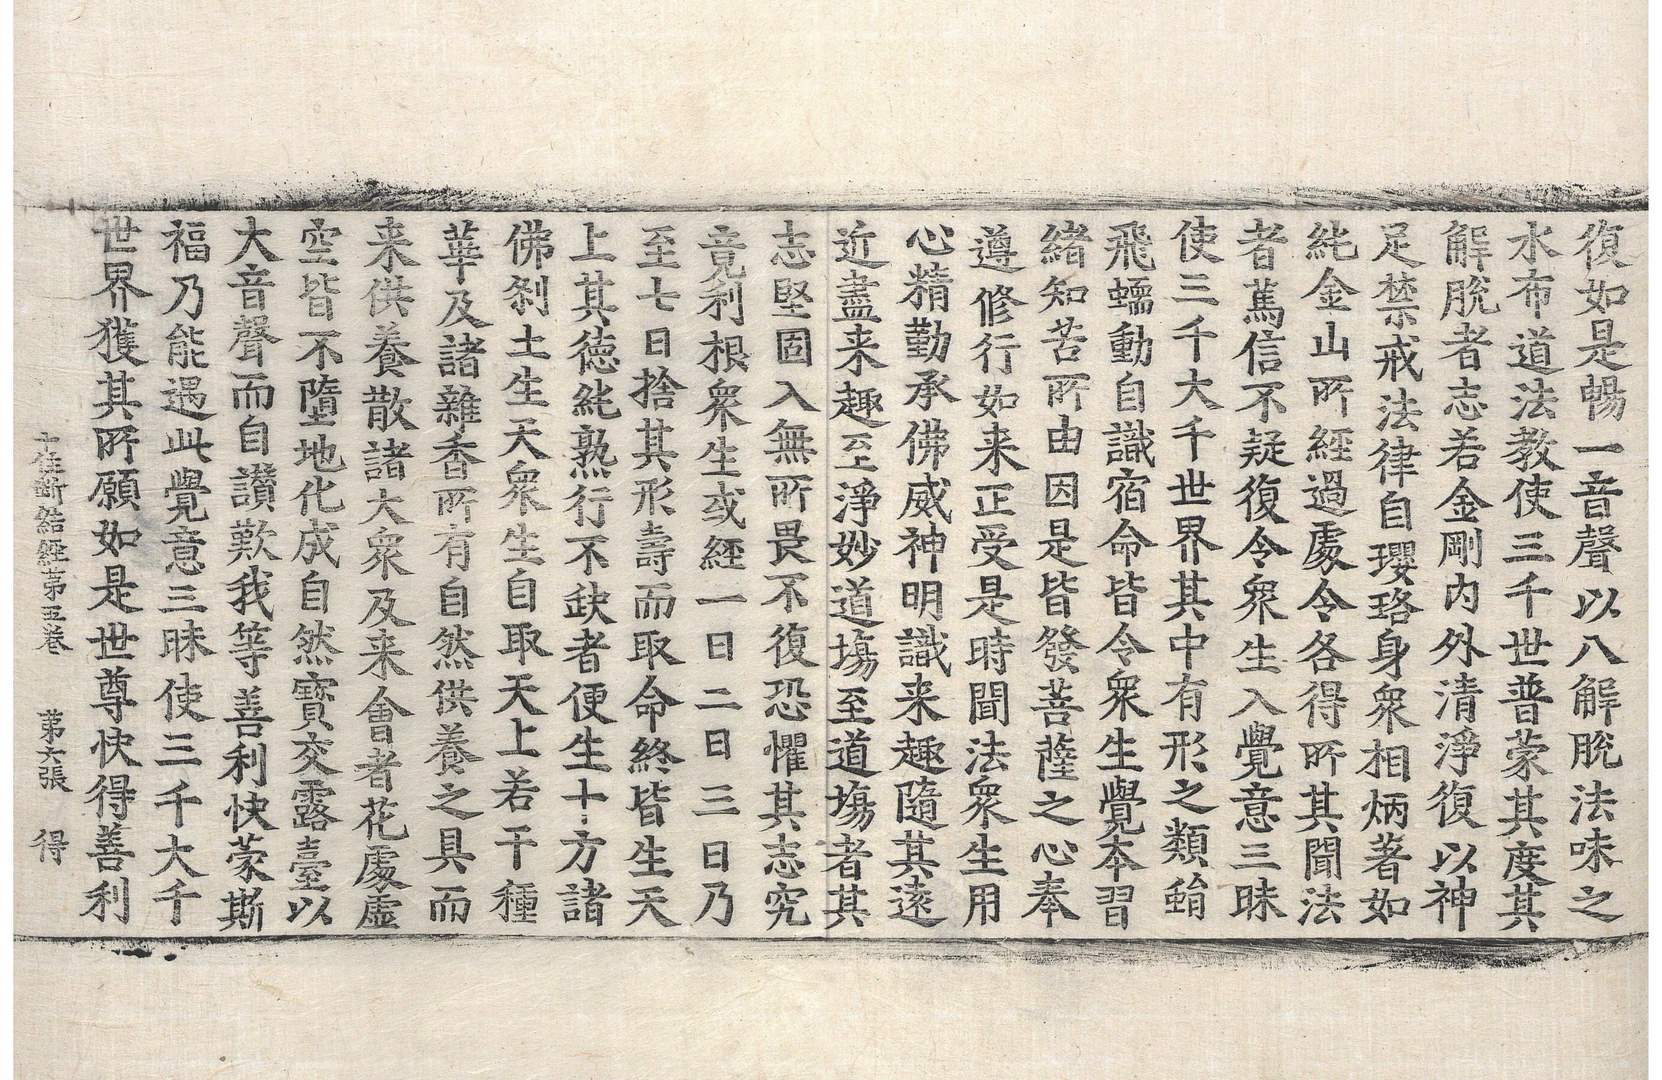 復如是暢一音聲以八解脫法味之
水布道法教使三千世普蒙其度其
解脫者志若金剛内外清淨復以神
足禁戒法律自瓔珞身衆相炳著如
紕金山所經過處令各得所其聞法
者篤信不疑復令衆生入覺意三昧
使三千大千世界其中有形之類蜎
飛蠕動自識宿命皆令衆生覺本習
緒知苦所由因是皆發菩薩之心奉
遵修行如来正受是時聞法衆生用
心精勤承佛威神明識来趣隨其遠
近盡来趣至淨妙道場至道場者其
志堅固入無所畏不復恐懼其志究
竟利根衆生或經一日二日三日乃
至七日捨其形壽而取命終皆生天
上其德純熟行不缺者便生十方諸
佛刹土生天衆生自取天上若干種
華及諸雜香所有自然供養之具而
来供養散諸大衆及来會者花處虛
空皆不墮地化成自然寶交露臺以
大音聲而自讚歎我等善利快蒙斯
福乃能遇此覺意三昧使三千大千
世界獲其所願如是世尊快得善利
十住斷結經第五卷 第六張 得